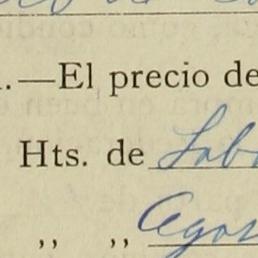 .—El precio de
Hts. de Lab
,, ,, Agos